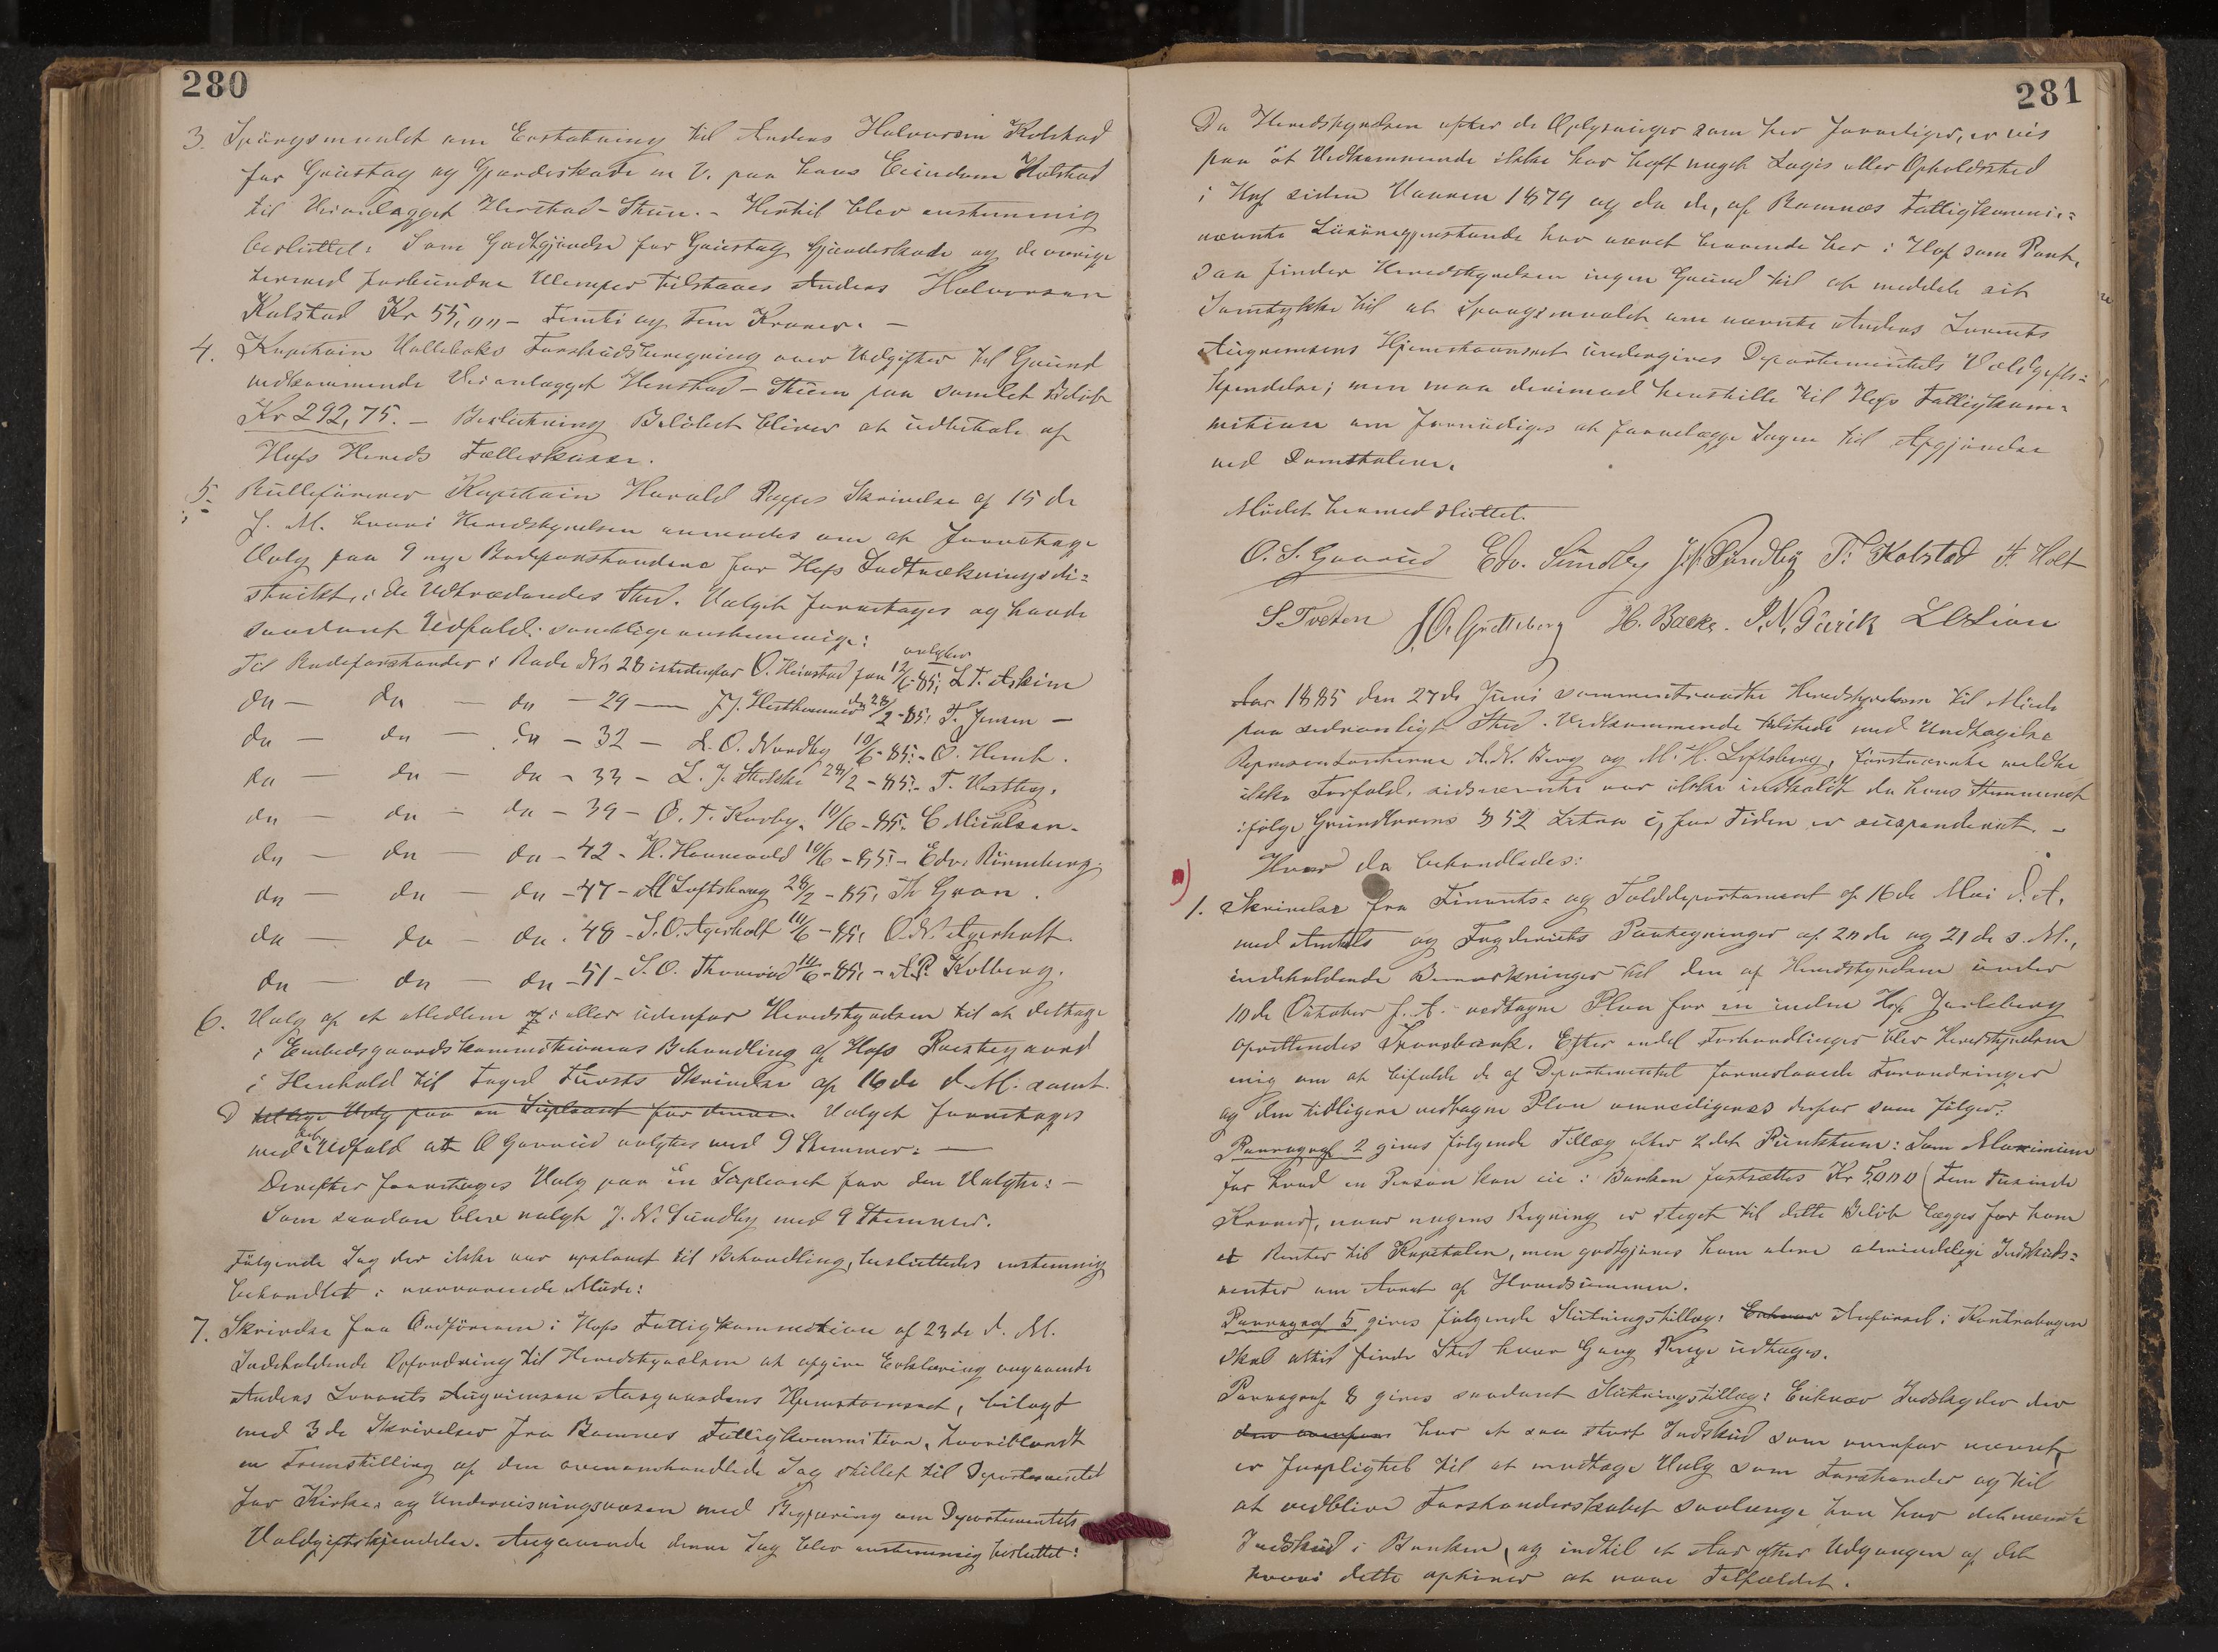 280
3. Spörgsmaalet om Erstatning til Anders Halvorsen Kolstad
for Grustag og Gjærdeskade m V. paa hans Eiendom Kolstad
til Veianlægget Henstad - Thuen. - Hertil blev enstemmig
besluttet: Som Godtgjörelse for Grustag Gjærdeskade og de övrige
hermed forbundne Ulemper tilstaaes Anders Halvorsen
Kolstad Kr 55,00 - Femti og Fem Kroner. -
4. Kapitain Valleboks Forskudsberegning over Udgifter til Grund
vedkommende Veianlægget Henstad - Thuen paa samlet Belöb
Kr 292,75. - Beslutning Belöbet bliver at udbetale af
Hofs Hereds Fælleskasse.
5. Rulleförerer Kapitain Harald Skrivelse af 15 de
f. M. hvori Heredstyrelsen anmodes om at foretage
Valg paa 9 nye Rodeforstandere for Hofs Indtrækningsdi=
strikt, i de Udtrædendes Sted. Valget foretages og havde
saadant Udfald; samtlige enstemmige:
valgtes
Til Rodeforstander i Rode No 28 istedenfor O. Henstad fra 12/6-85; L T. Askim
do - do - do - 29 - J J. Hesthammer do 28/2-85; T. Jensen -
do - do - do - 32 - A. O. Nordby 10/6-85:- O. Hemb.
do - do - do - 33 - L. J. 28/2-85:- T. Vestby.
do - do - do - 39 - O. T. Karby. 10/6-85. C Mickelsen.
do - do - do - 42 - H. Hannevold 10/6-85:- Edv. Rönneberg.
do - do - do - 47 - M Loftsberg 28/2-85, Th Gran.
do - do - do. 48 - S. O. Agerholt 10/6-85, O. N. Agerholt.
do - do - do - 51 - S. O. Thorrud 10/6-85, - A. P. Kolberg.
6. Valg af et Medlem af i eller udenfor Heredstyrelsen til at deltage
i Embedsgaardskommissionens Behandling af Hofs Præstegaard
i Henhold til Foged Fursts Skrivelse af 16 de d. M. samt
tillige Valg paa en Supleant for denne. Valget foretages
med Udfald at O Gaarud valgtes med 9 Stemmer: -
Derefter foretages Valg paa en Supleant for den Valgte: -
Som saadan blev valgt J. N. Sundby med 9 Stemmer.
Fölgende Sag der ikke var opslaaet til Behandling, besluttedes enstemmig
behandlet i nærværende Möde:
7. Skrivelse fra Ordföreren i Hofs Fattigkommission af 23 de d. M.
Indeholdende Opfordring til Heredstyrelsen at afgive Erklæring angaaende
Anders Lorents Angrimsen Aasgaardens Hjemstavnsret, bilagt
med 3 de Skrivelser fra Ramnes Fattigkommission, hvoriblandt
en Fremstilling af den ovenomhandlede Sag stillet til Departementet
for Kirke- og Undervisningsvæsen med Begjæring om Departementets
Voldgiftskjendelse. Angaaende denne Sag blev enstemmig besluttet:
281
Da Heredstyrelsen efter de Oplysninger som her foreligger, er vis
paa at Vedkommende ikke har haft noget Logis eller Opholdssted
i Hof siden Vaaren 1879 og da de, af Ramnes Fattigkommis=
nævnte har været beroende her i Hof som Pant,
saa finder Heredstyrelsen ingen Grund til at meddele sit
Samtykke til at Spörgsmaalet om nævnte Anders Lorents
Angrimsens Hjemstavnsret undergives Departementets Voldgifts=
kjendelse; men maa derimod henstille til Hofs Fattigkom=
mission om fornödiges at forelægge Sagen til Afgjörelse
ved Domstolene.
Mödet hermed sluttet.
O. S. Gaarud Edv. Sundby J. N. Sundby T. Kolstad F. Holt
S. Tveten J. O. Gretteberg H. Backe. P. N. L Askim
Aar 1885 den 27 de Juni sammentraadte Heredstyrelsen til Möde
paa sedvanligt Sted. Vedkommende tilstede med Undtagelse
Repræsentanterne A. N. Berg og M. H. Loftsberg, förstnævnte meldte
ikke Forfald, sidsnævnte var ikke indkaldt da hans Stemmeret
ifölge Grundlovens § 52 Litra c, for Tiden er suspenderet. -
Hvor da behandledes:
1. Skrivelse fra Finants= og Tolddepartement af 16 de Mai d. A.
med Amtets og Fogderiets Paategninger af 20 de og 21 de s. M.,
indeholdende Bemærkninger til den af Heredstyrelsen under
10 de Oktober f. A. vedtagne Plan for en inden Hof Jarlsberg
oprettendes Sparebank. Efter endel Forhandlinger blev Heredstyrelsen
enig om at bifalde de af Departementet foreslaaede Forandringer
og den tidligere vedtagne Plan omredigeres derfor som fölger:
Paragraf 2 gives fölgende Tillæg efter 2 det Punktum: Som Maximum
for hvad en Person kan eie i Banken fastsættes Kr 5,000 (Fem Tusinde
Kroner), naar nogens Regning er steget til dette Belöb lægges for ham
ei Renter til Kapitalen, men godtgjöres ham alene almindelige Indskuds=
renter om Aaret af Hovedsummen.
Paragraf 5 gives fölgende Slutningstillæg: Enhver Anförsel i Kontrabogen
skal altid finde Sted hver Gang Penge udtages.
Paragraf 8 gives saadant Slutningstillæg: Enhver Indskyder der
der ovenfor har et saa stort Indskud som ovenfor nævnt,
er forpligtet til at modtage Valg som Forstander og til
at vedblive Forstanderskabet saalænge han har detnævnte
Indskud i Banken, og indtil et Aar efter Udgangen af det
hvori dette ophörer at være Tilfældet.